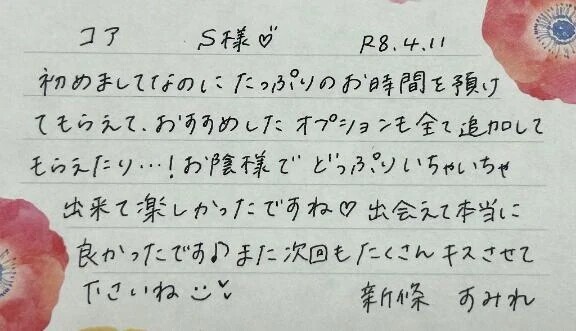 コア S様♡ R8.4.11
初めましてなのにたっぷりのお時間を預け
てもらえて、おすすめしたオプションも全て追加して
もらえたり…!お陰様でどっぷりいちゃいちゃ
出来て楽しかったですね♡出会えて本当に
良かったです♪また次回もたくさんキスさせて
下さいね
新條 すみれ